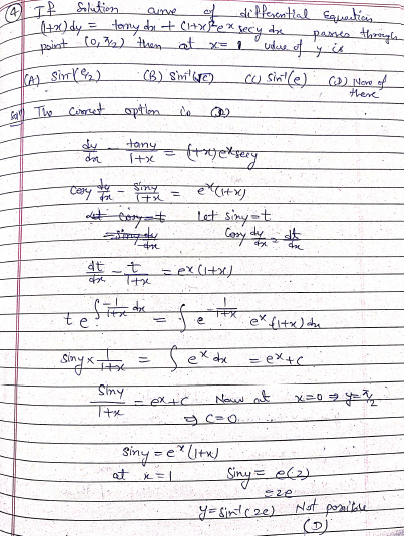 (4) If Solution curve of differential Equation
(1+x)dy = tany dx + (1+x)²eˣ secy dx passes through
point (0, π/2) then at x = 1 value of y is
(A) Sin⁻¹(e/2) (B) Sin⁻¹(√e) (C) Sin⁻¹(e) (D) None of
these
Solⁿ The Correct option is (D)
dy/dx - tany/1+x = (1+x)eˣsecy
Cosy dy/dx - Siny/1+x = eˣ(1+x)
let Siny=t
Cosy dy/dx = dt/dx
dt/dx - t/1+x = eˣ(1+x)
t e^∫-1/1+x dx = ∫ e^-1/1+x eˣ(1+x)dx
Siny × 1/1+x = ∫ eˣ dx = eˣ+C
Siny/1+x = eˣ+C Now at x=0 ⇒ y=π/2
⇒ C=0
Siny = eˣ(1+x)
at x=1 Siny = e(2)
=2e
y=Sin⁻¹(2e) Not possible
(D)